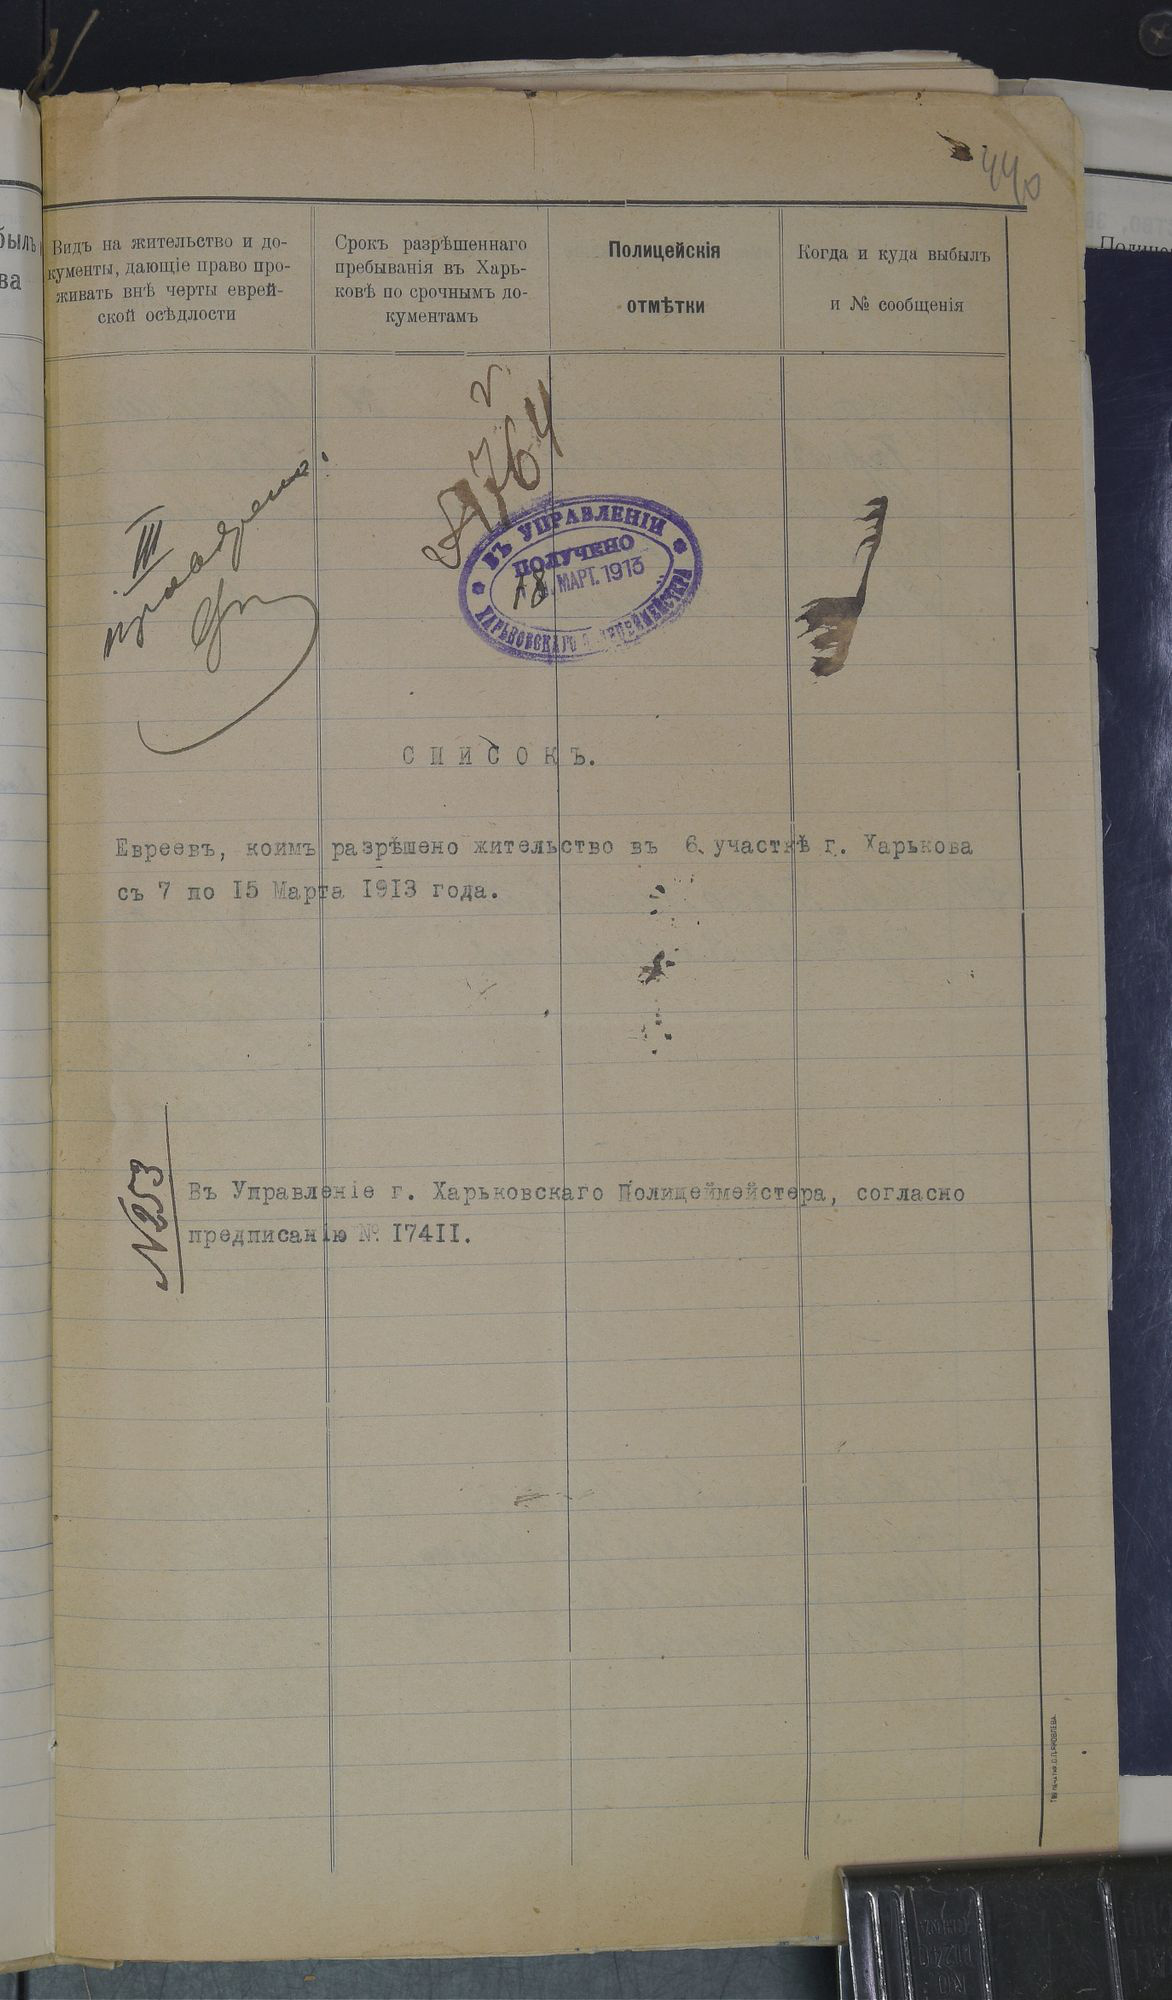 440
Видъ на жительство и до-
кументы, дающіе право про-
живать внѣ черты еврей-
ской осѣдлости
Срокъ разрѣшеннаго
пребыванія въ Харь-
ковѣ по срочнымъ до-
кументамъ
Полицейскія
отмѣтки
Когда и куда выбылъ
и № сообщенія
III
ВЪ УПРАВЛЕНІИ
ПОЛУЧЕНО
18 МАРТ. 1913
ХАРЬКОВСКАГО ПОЛИЦЕЙМЕЙСТЕРА
СПИСОКЪ.
Евреевъ, коимъ разрѣшено жительство въ 6 участкѣ г. Харькова
съ 7 по I5 Марта I9I3 года.
№253
Въ Управленіе г. Харьковскаго Полицеймейстера, согласно
предписанію № I74II.